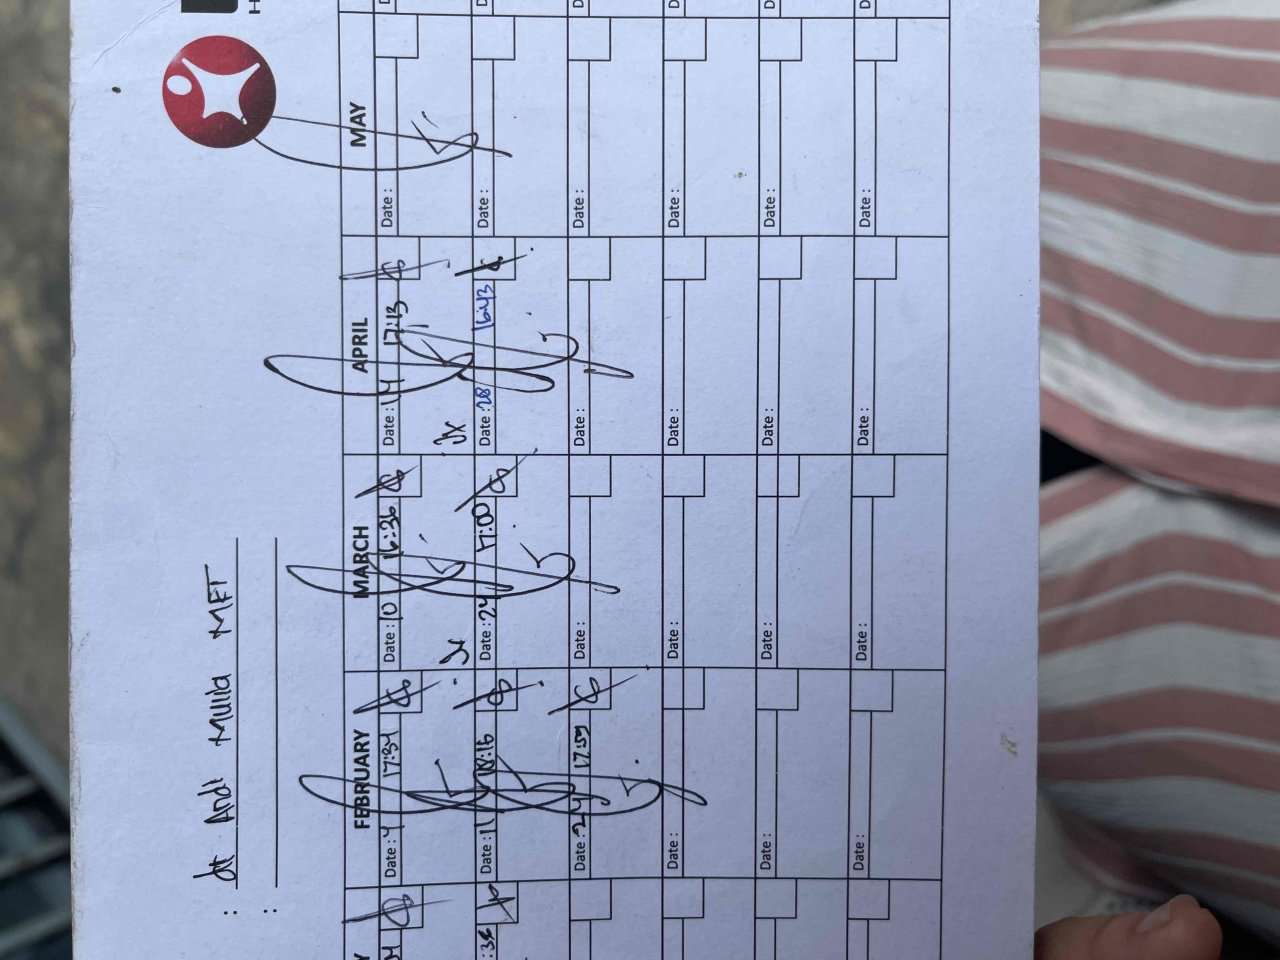 : dr Andi Mulia MFT
:
FEBRUARY MARCH APRIL MAY
Date : 4 17:34 Date : 10 16:36 Date : 14 17:13 Date :
Date : 11 18:16 Date : 24 17:00 Date : 28 16:43 Date :
Date : 24 17:59 Date : Date : Date :
Date : Date : Date : Date :
Date : Date : Date : Date :
Date : Date : Date : Date :